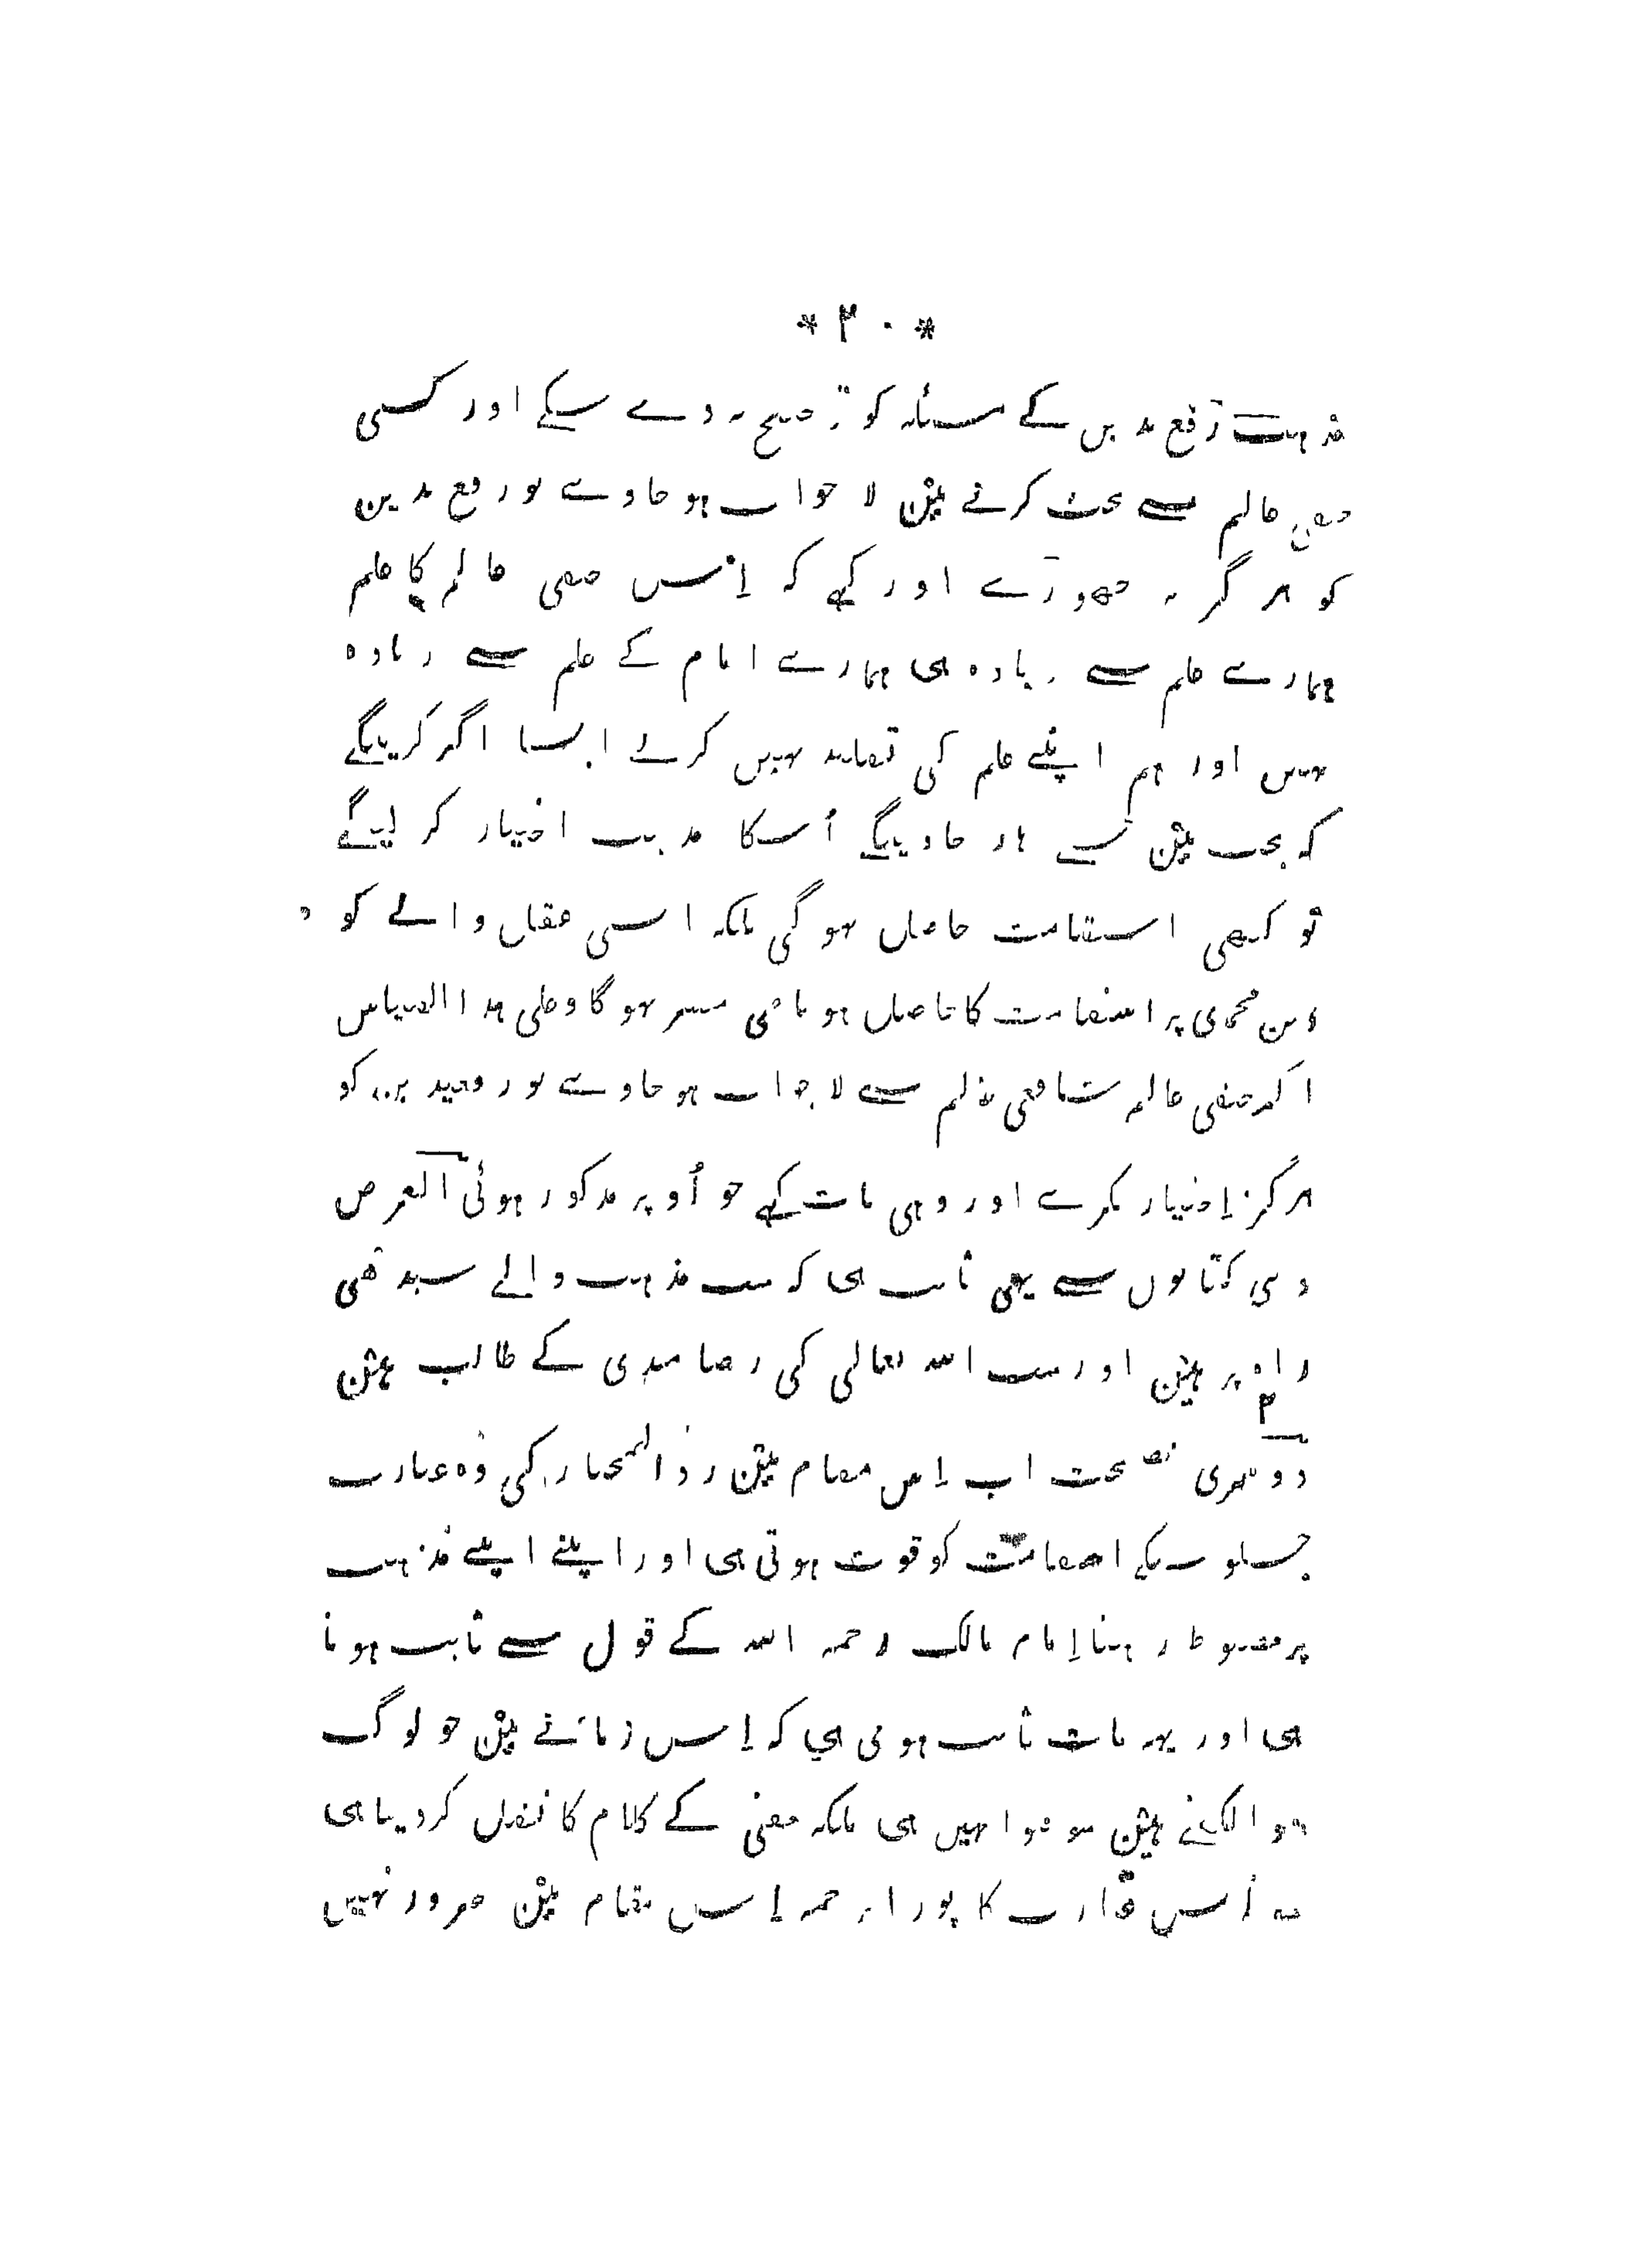 * ۳۰ *
مذہب رفع یدین کے مسئلہ کو ترجیح نہ دے سکے اور کسی
حنفی عالم سے بحث کرنے مین لا جواب ہو جاوے تو رفع یدین
کو ہر گز نہ چھوڑے اور کہے کہ اِس حنفی عالم کا علم
ہمارے علم سے زیادہ ہی ہمارے امام کے علم سے زیادہ
نہیں اور ہم اپنے علم کی تقلید نہیں کرتے ایسا اگر کرینگے
کہ بحث مین جس سے ہار جاوینگے اُسکا مذہب اختیار کر لینگے
تو کبھی استقامت حاصل نہو گی بلکہ اسی عقل والے کو
دین محمدی پر استقامت کا حاصل ہونا بھی میسر نہو گا و علی ہذا القیاس
اگر حنفی عالم شافعی عالم سے لا جواب ہو جاوے تو رفع یدین کو
ہرگز اِختیار نکرے اور وہی بات کہے جو اُوپر مذکور ہوئی الغرض
دینی کتابوں سے یہی ثابت ہی کہ سب مذہب والے سیدھی
راہ پر ہین اور سب اللہ تعالی کی رضامندی کے طالب ہین
۲
دوسری نصیحت اب اِس مقام مین ردّ المحتار کی وہ عبارت
جس سے استقامت کو قوت ہوتی ہی اور اپنے اپنے مذہب
پر مضبوط رہنا اِمام مالک رحمہ اللہ کے قول سے ثابت ہوتا
ہی اور یہہ بات ثابت ہوتی ہی کہ اِس زمانے مین جو لوگ
فتوا لکھتے ہین سو فتوا نہیں ہی بلکہ مفتی کے کلام کا نقل کر دینا ہی
اُس عبارت کا پورا ترجمہ اِس مقام مین ضرور نہیں